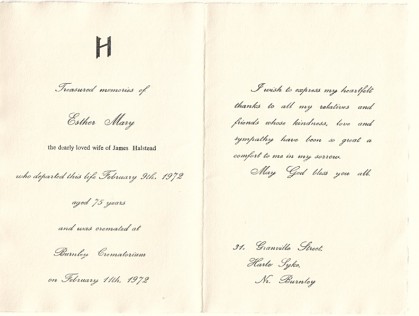 H
Treasured memories of
Esther Mary
the dearly loved wife of James Halstead
who departed this life February 9th, 1972
aged 75 years
and was cremated at
Burnley Crematorium
on February 11th, 1972
I wish to express my heartfelt
thanks to all my relatives and
friends whose kindness, love and
sympathy have been so great a
comfort to me in my sorrow.
May God bless you all.
31, Granville Street,
Harle Syke,
Nr. Burnley